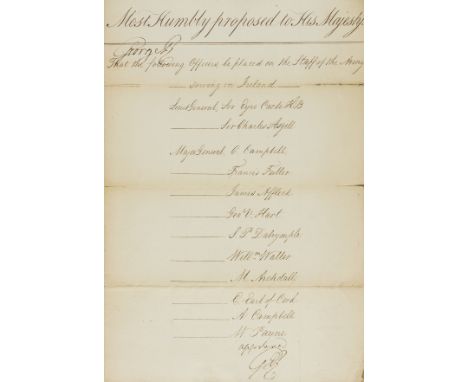 Most Humbly proposed to His Majesty,
George R
That the following Officers be placed on the Staff of the Army
serving in Ireland
Lieut General, Sir Eyre Coote K.B
Sir Charles Asgill
Major General C. Campbell
Francis Fuller
James Affleck
Geo: V: Hart
S. P. Dalrymple
Willm. Waller
M. Archdall
E. Earl of Cork
A. Campbell
W. Payne
approved
G R